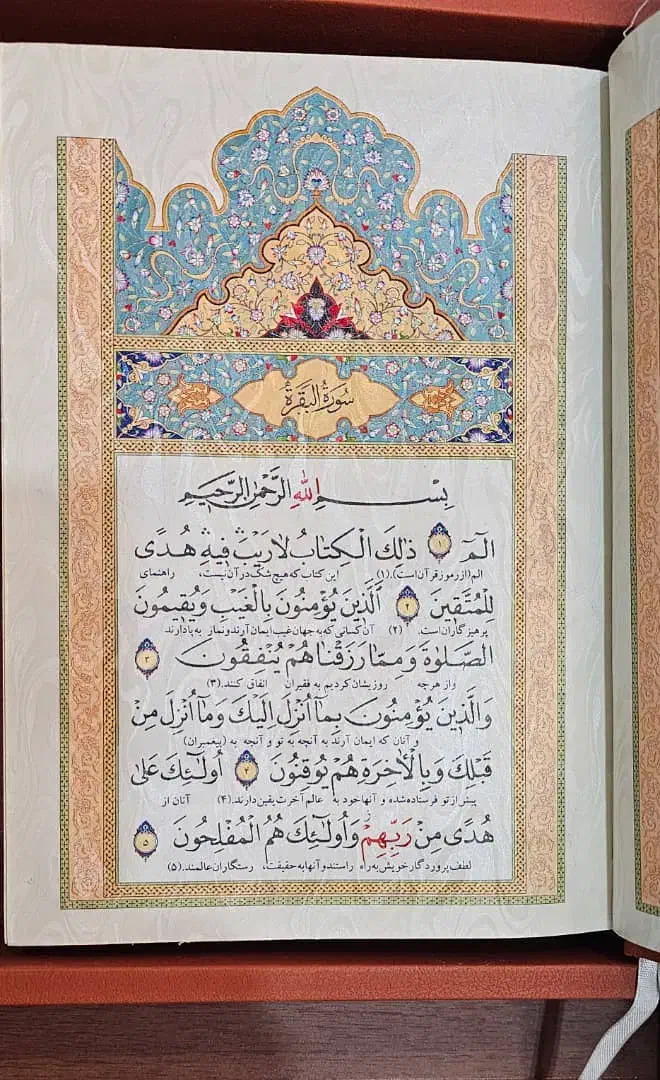 سُورَةُ البَقَرَة
بِسْمِ اللهِ الرَّحْمٰنِ الرَّحيمِ
الٓمٓ ١ ذٰلِكَ الْكِتابُ لا رَيْبَ فيهِ هُدًى
الم (از رموز قرآن است). (۱) این کتاب که هیچ شک در آن نیست، راهنمای
لِلْمُتَّقينَ ٢ اَلَّذينَ يُؤْمِنُونَ بِالْغَيْبِ وَيُقيمُونَ
پرهیزگاران است. (۲) آن کسانی که به جهان غیب ایمان آرند و نماز به پا دارند
الصَّلٰوةَ وَمِمّا رَزَقْناهُمْ يُنْفِقُونَ ٣
و از هر چه روزیشان کردیم به فقیران انفاق کنند. (۳)
وَالَّذينَ يُؤْمِنُونَ بِمآ اُنْزِلَ اِلَيْكَ وَمآ اُنْزِلَ مِنْ
و آنان که ایمان آرند به آنچه به تو و آنچه به (پیغمبران)
قَبْلِكَ وَبِالْاٰخِرَةِ هُمْ يُوقِنُونَ ٤ اُولٰٓئِكَ عَلىٰ
پیش از تو فرستاده شده و آنها خود به عالم آخرت یقین دارند. (۴) آنان از
هُدًى مِنْ رَبِّهِمْ وَاُولٰٓئِكَ هُمُ الْمُفْلِحُونَ ٥
لطف پروردگار خویش به راه راستند و آنها به حقیقت، رستگاران عالمند. (۵)